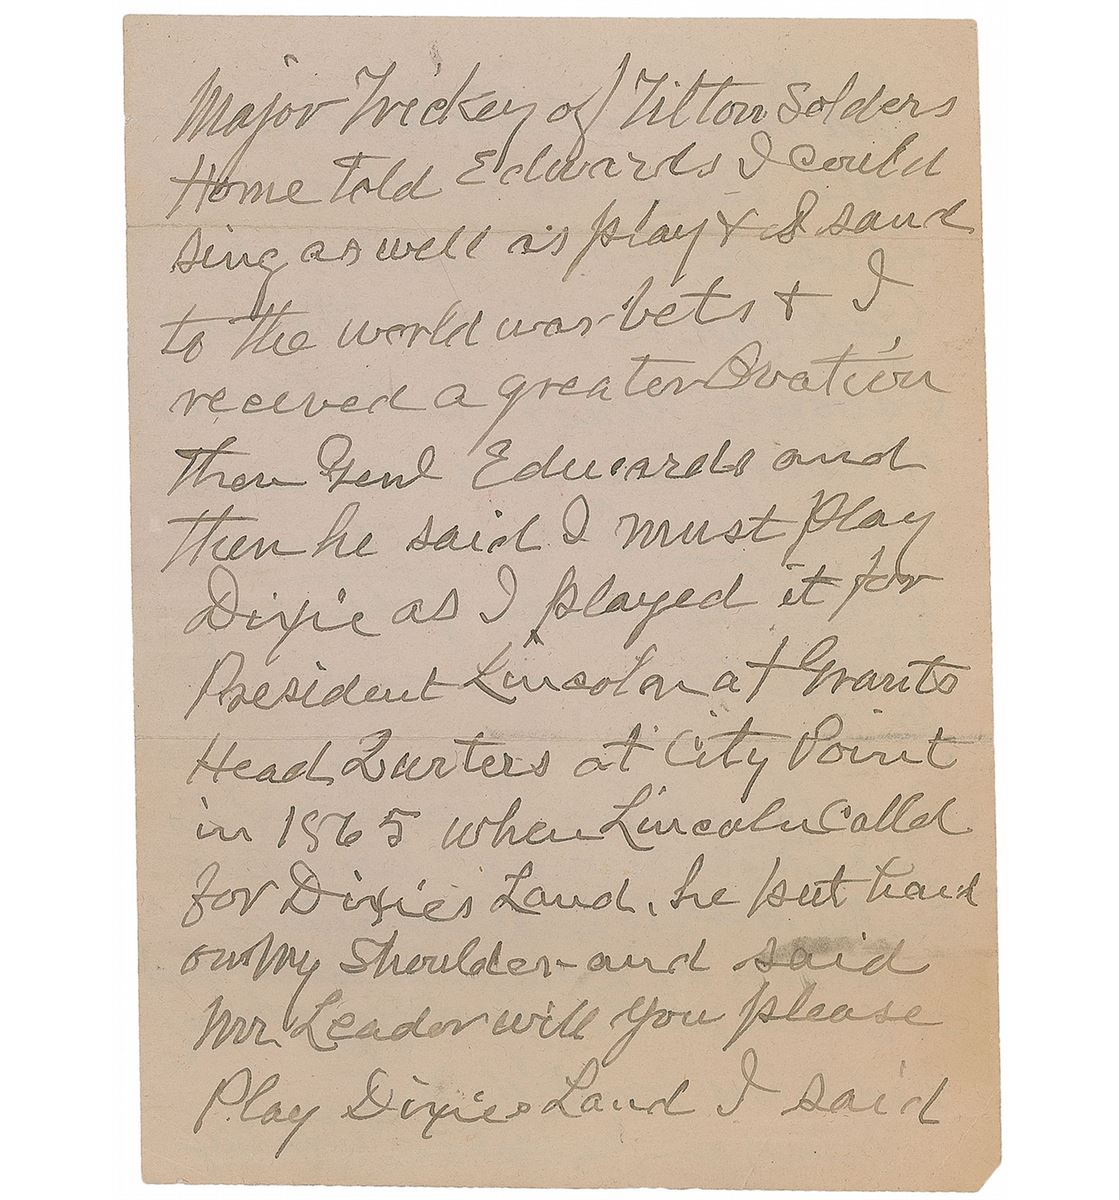 Major Trickey of Tilton Solders
Home told Edwards I could
sing as well as play & I sand
to the world war bets & I
received a greater Ovation
then Genl Edwards and
then he said I must play
Dixie as I played it for
President Lincoln at Grants
Head Qurters at City Point
in 1865 when Lincoln Calld
for Dixies Land, he put hand
on My Shoulder and said
Mr. Leader will you please
Play Dixies Land I said